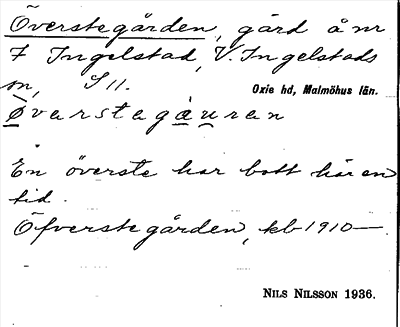 Överstegården, gård å nr
7 Ingelstad, V. Ingelstads
sn, S 11. Oxie hd, Malmöhus län.
Øvarstegäuran
En överste har bott här en
tid.
Öfverstegården, kb 1910—.
NILS NILSSON 1936.